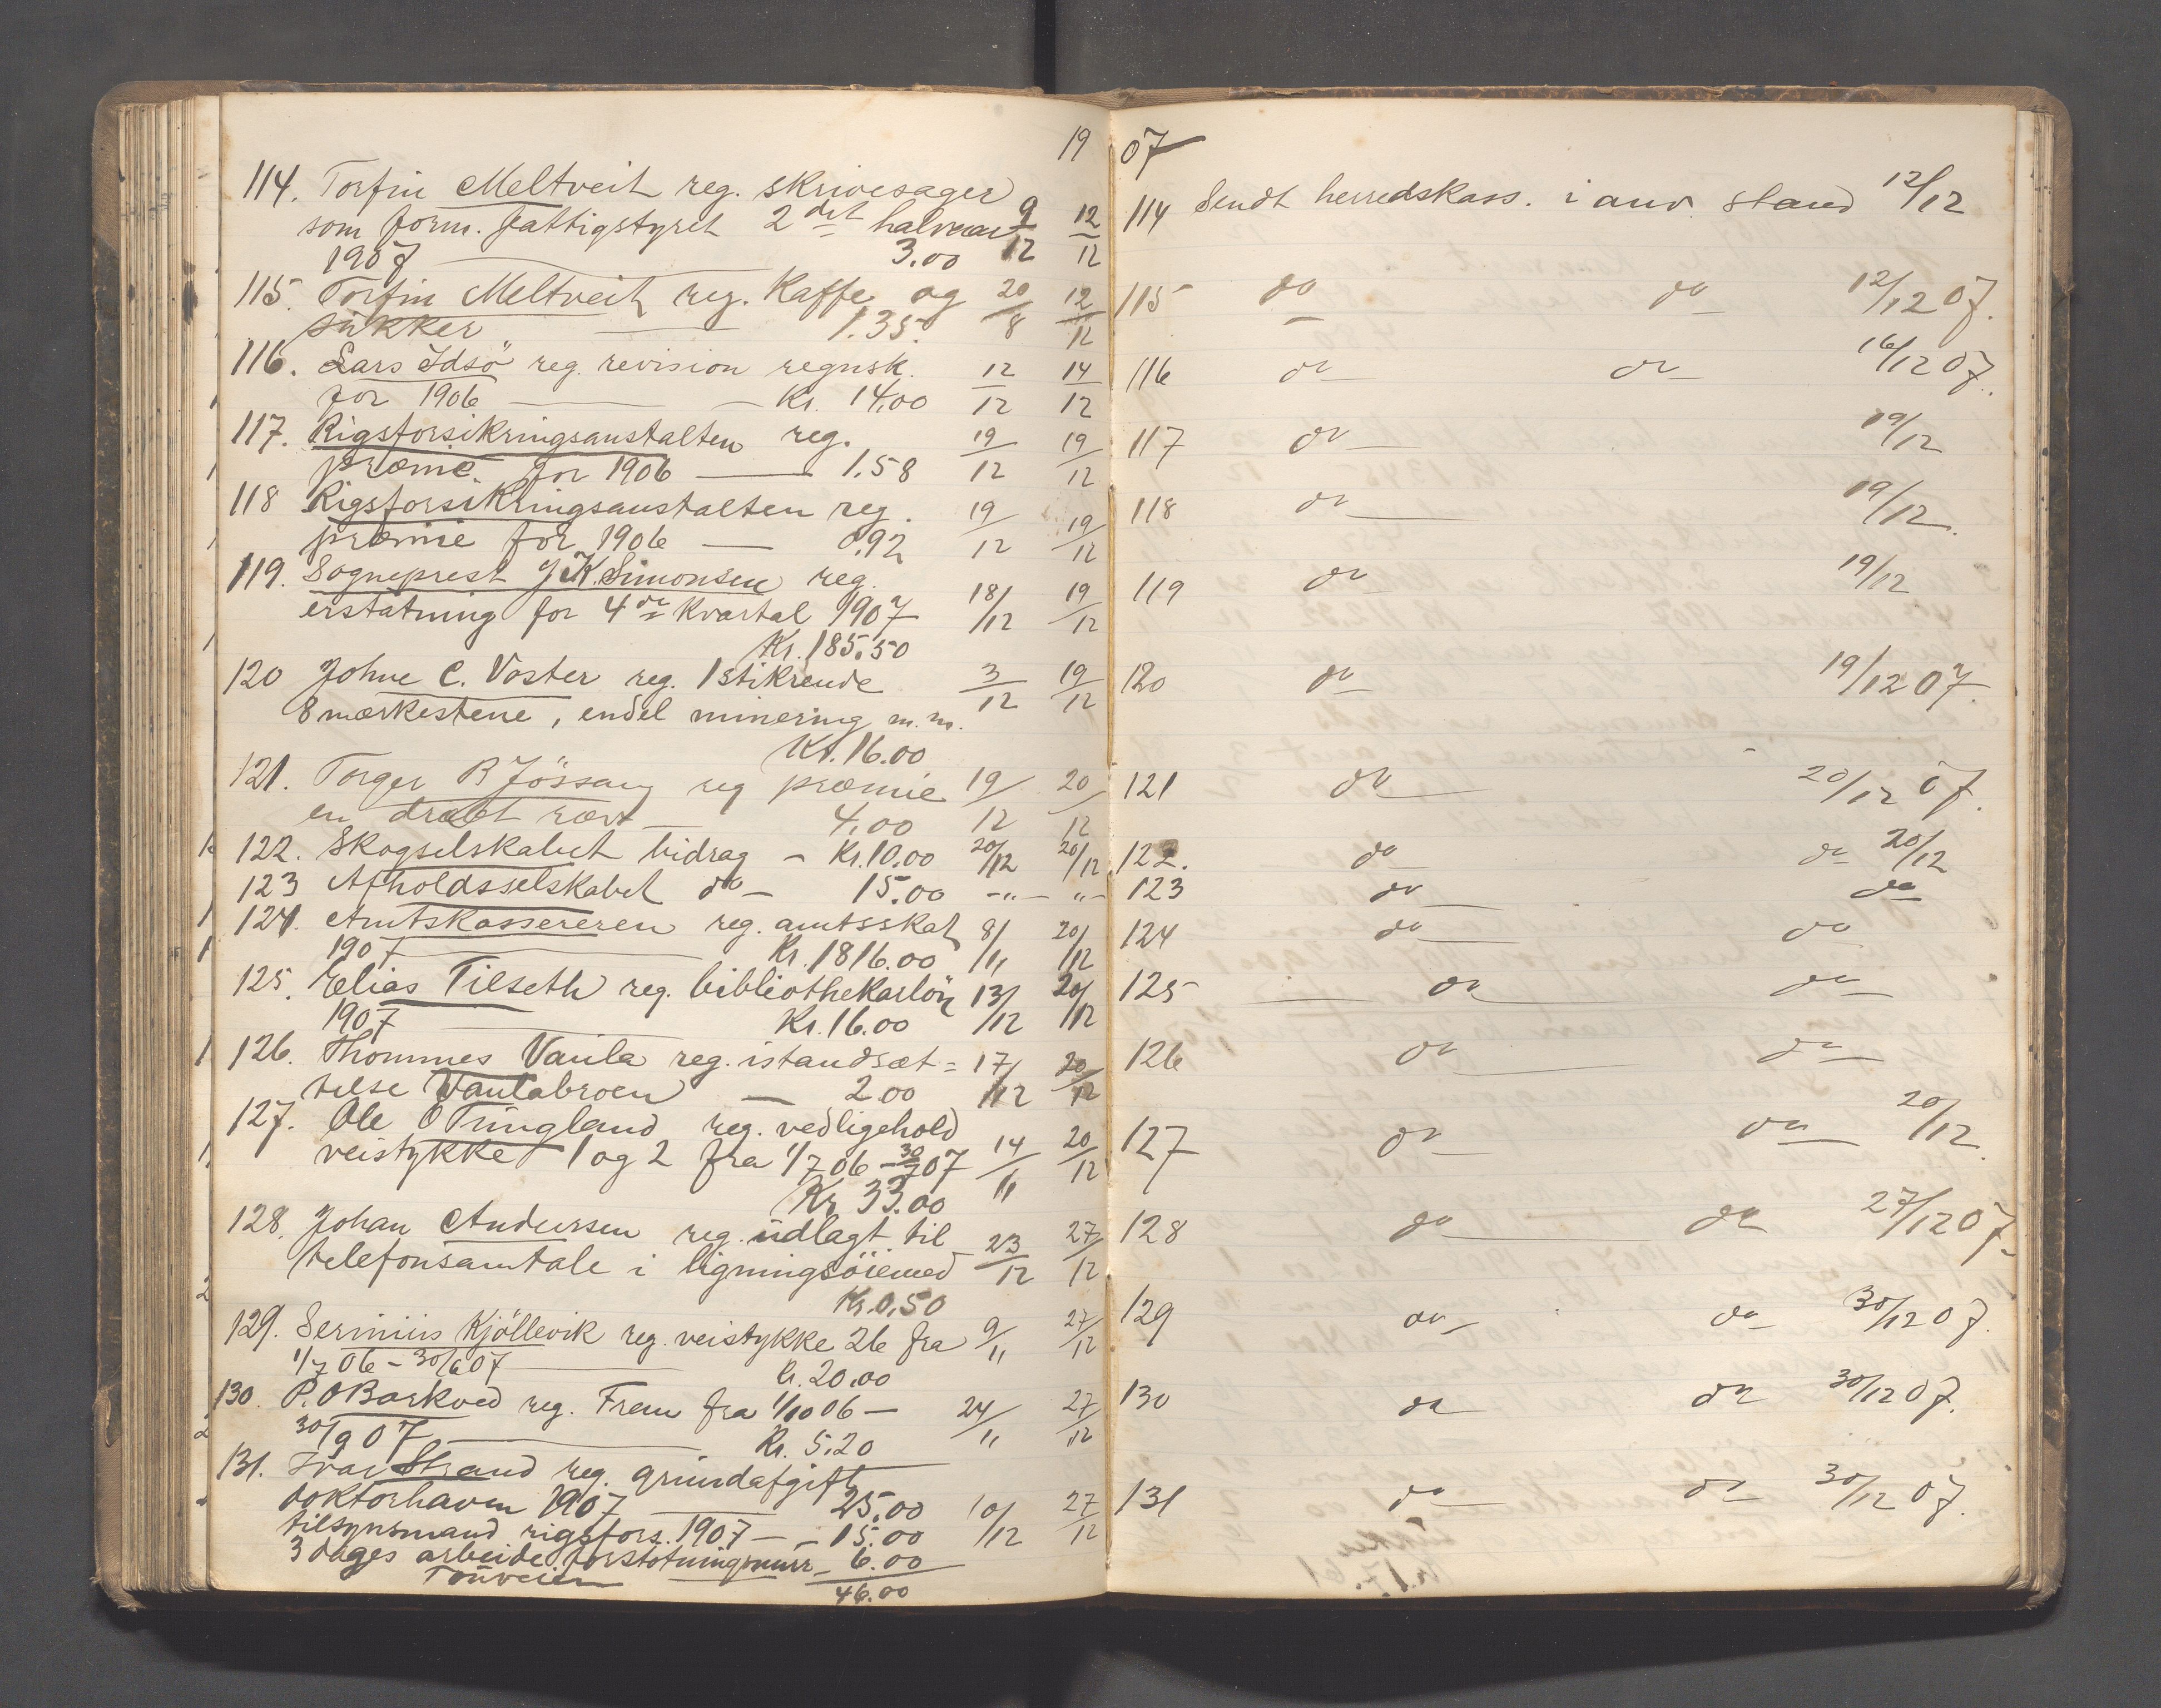 19
114. Torfin Meltveit reg. skrivesager
som form. fattigstyret 2det halvaar 9/12 12/12
1907 — 3.00
115. Torfin Meltveit reg. Kaffe og 20/8 12/12
sukker — 1.35.
116. Lars Idsö reg. revision regnsk. 12/12 14/12
for 1906 — Kr. 14.00
117. Rigsforsikringsanstalten reg. 19/12 19/12
præmie. for 1906 — 1.58
118 Rigsforsikringsanstalten reg. 19/12 19/12
præmie for 1906 — 0.92
119. Sogneprest J K. Simonsen reg.
erstatning for 4de Kvartal 1907 18/12 19/12
Kr. 185.50
120 Johne C. Voster reg. 1 stikrende 3/12 19/12
8 mærkestene, endel minering m.m.
Kr. 16.00
121. Torger B Jössang reg præmie 19/12 20/12
en dræbt ræv — 4.00
122. Skogselskabet bidrag – Kr. 10.00 20/12 20/12
123 Afholdsselskabet do – 15.00 -"- "-
124. Amtskassereren reg. amtsskat 8/11 20/12
1907 — Kr. 1816.00
125. Elias Tilseth reg. bibliothekarlön 13/12 20/12
1907 — Kr. 16.00
126. Thommes Vaula reg. istandsæt= 17/12 20/12
telse Vaulabroen — 2.00
127. Ole O Tungland reg. vedligehold
veistykke 1 og 2 fra 1/7 06 – 30/7 07 14/11 20/12
Kr. 33.00
128. Johan Andersen reg. udlagt til
telefonsamtale i ligningsöiemed 23/12 27/12
Kr. 0.50
129. Serinius Kjöllevik reg. veistykke 26 fra 9/11 27/12
1/7 06 – 30/6 07 — Kr. 20.00
130. P. O Barkved reg. Frem fra 1/10 06 – 24/11 27/12
30/9 07 — Kr. 5.20
131. Ivar Strand reg. grundafgift
doktorhaven 1907 — 25.00 10/12 27/12
tilsynsmand rigsfors. 1907 – – 15.00
3 dages arbeide forstøtningsmur – 6.00
Touveien
46.00
07
114 Sendt herredskass. i anv. stand 12/12
115 do do 12/12 07.
116 do do 16/12 07.
117 do 19/12
118 do 19/12.
119 do 19/12
120 do 19/12 07.
121 do 20/12 07.
122. do do 20/12
123 do do
124 do do
125 do do
126 do do
127 do do 20/12.
128 do do 27/12 07.
129 do do 30/12 07.
130 do do 30/12 07.
131 do do 30/12 07.